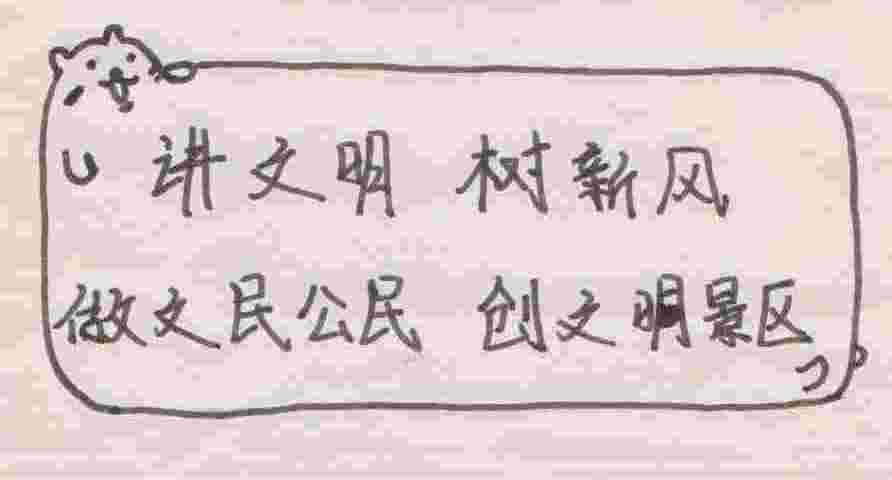 讲文明 树新风
做文民公民 创文明景区